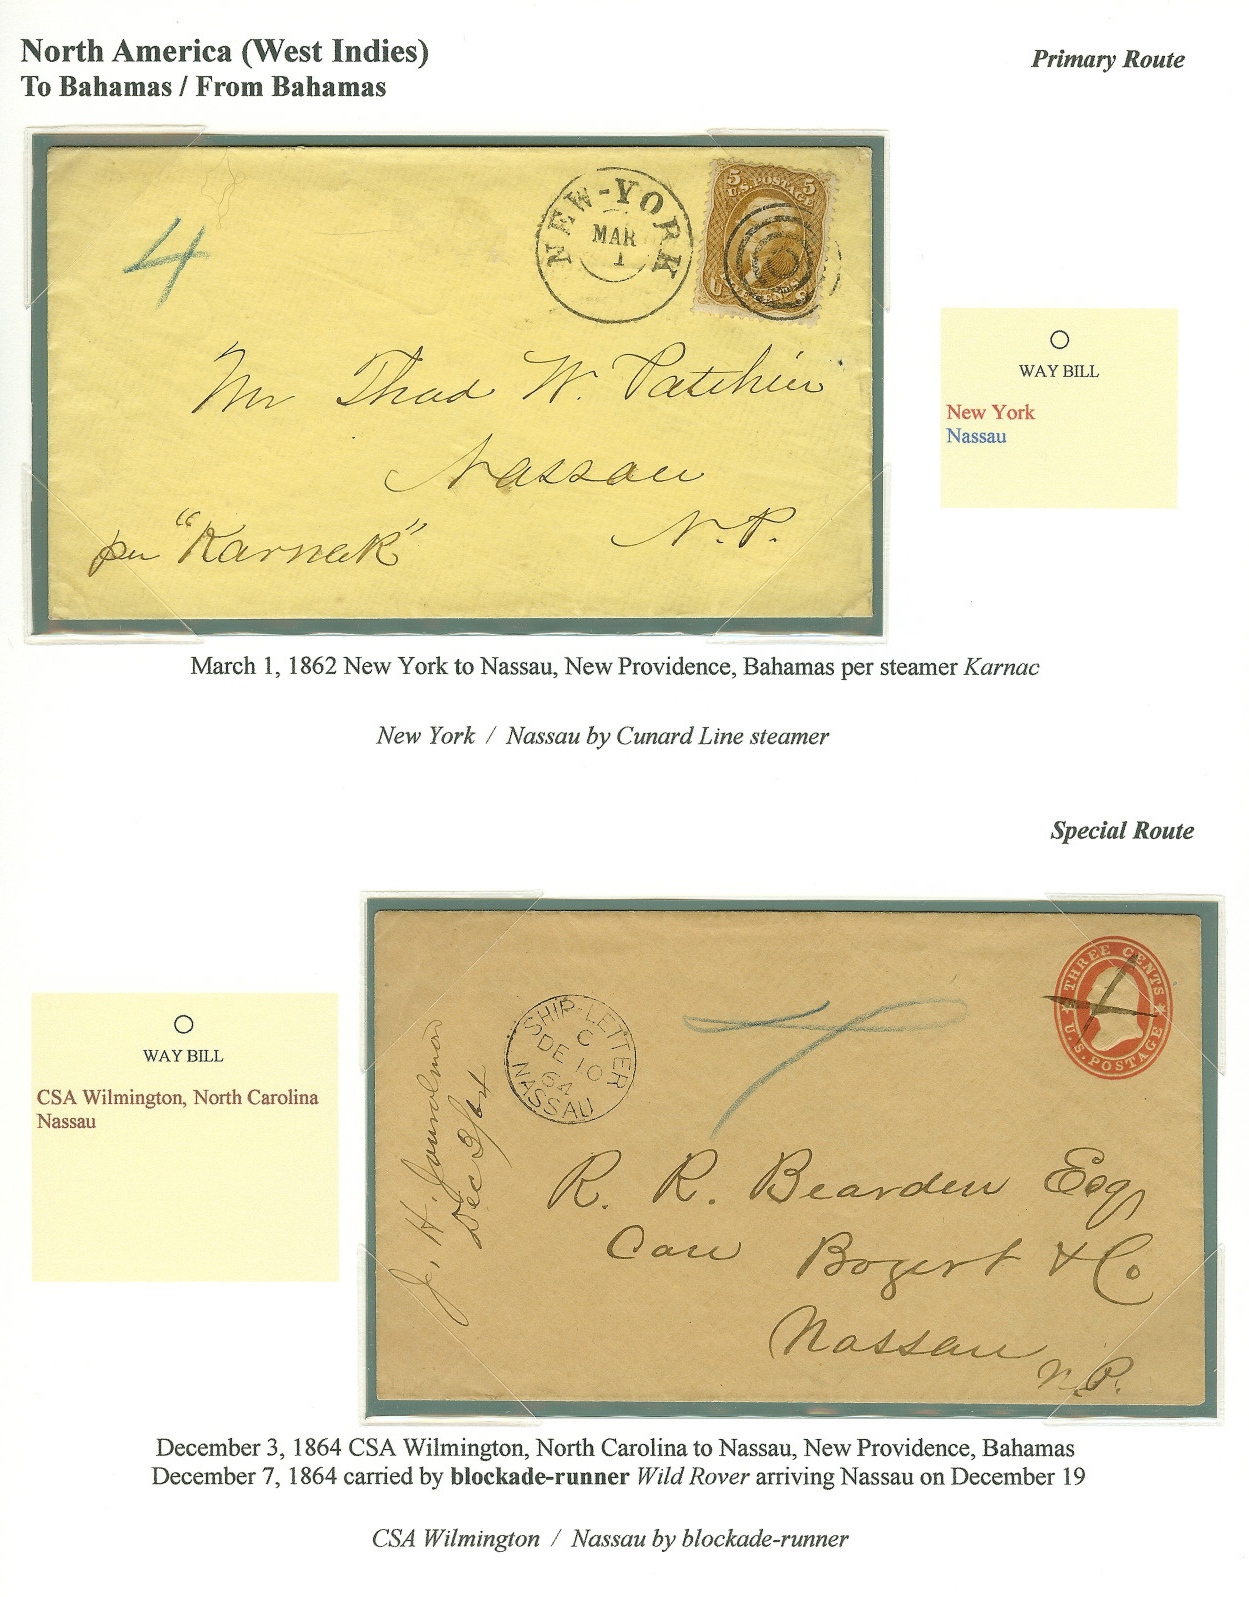 North America (West Indies)
To Bahamas / From Bahamas
Primary Route
4
NEW-YORK
MAR
1
5 5
U.S. POSTAGE
Mr Thad W. Patchin
Nassau
N.P.
per "Karnak"
WAY BILL
New York
Nassau
March 1, 1862 New York to Nassau, New Providence, Bahamas per steamer Karnac
New York / Nassau by Cunard Line steamer
Special Route
WAY BILL
CSA Wilmington, North Carolina
Nassau
SHIP-LETTER
C
DE 10
64
NASSAU
THREE CENTS
U.S. POSTAGE
J. H.
Dec 3/64
R. R. Bearden Esq
Care Bogert & Co
Nassau
N.P.
December 3, 1864 CSA Wilmington, North Carolina to Nassau, New Providence, Bahamas
December 7, 1864 carried by blockade-runner Wild Rover arriving Nassau on December 19
CSA Wilmington / Nassau by blockade-runner